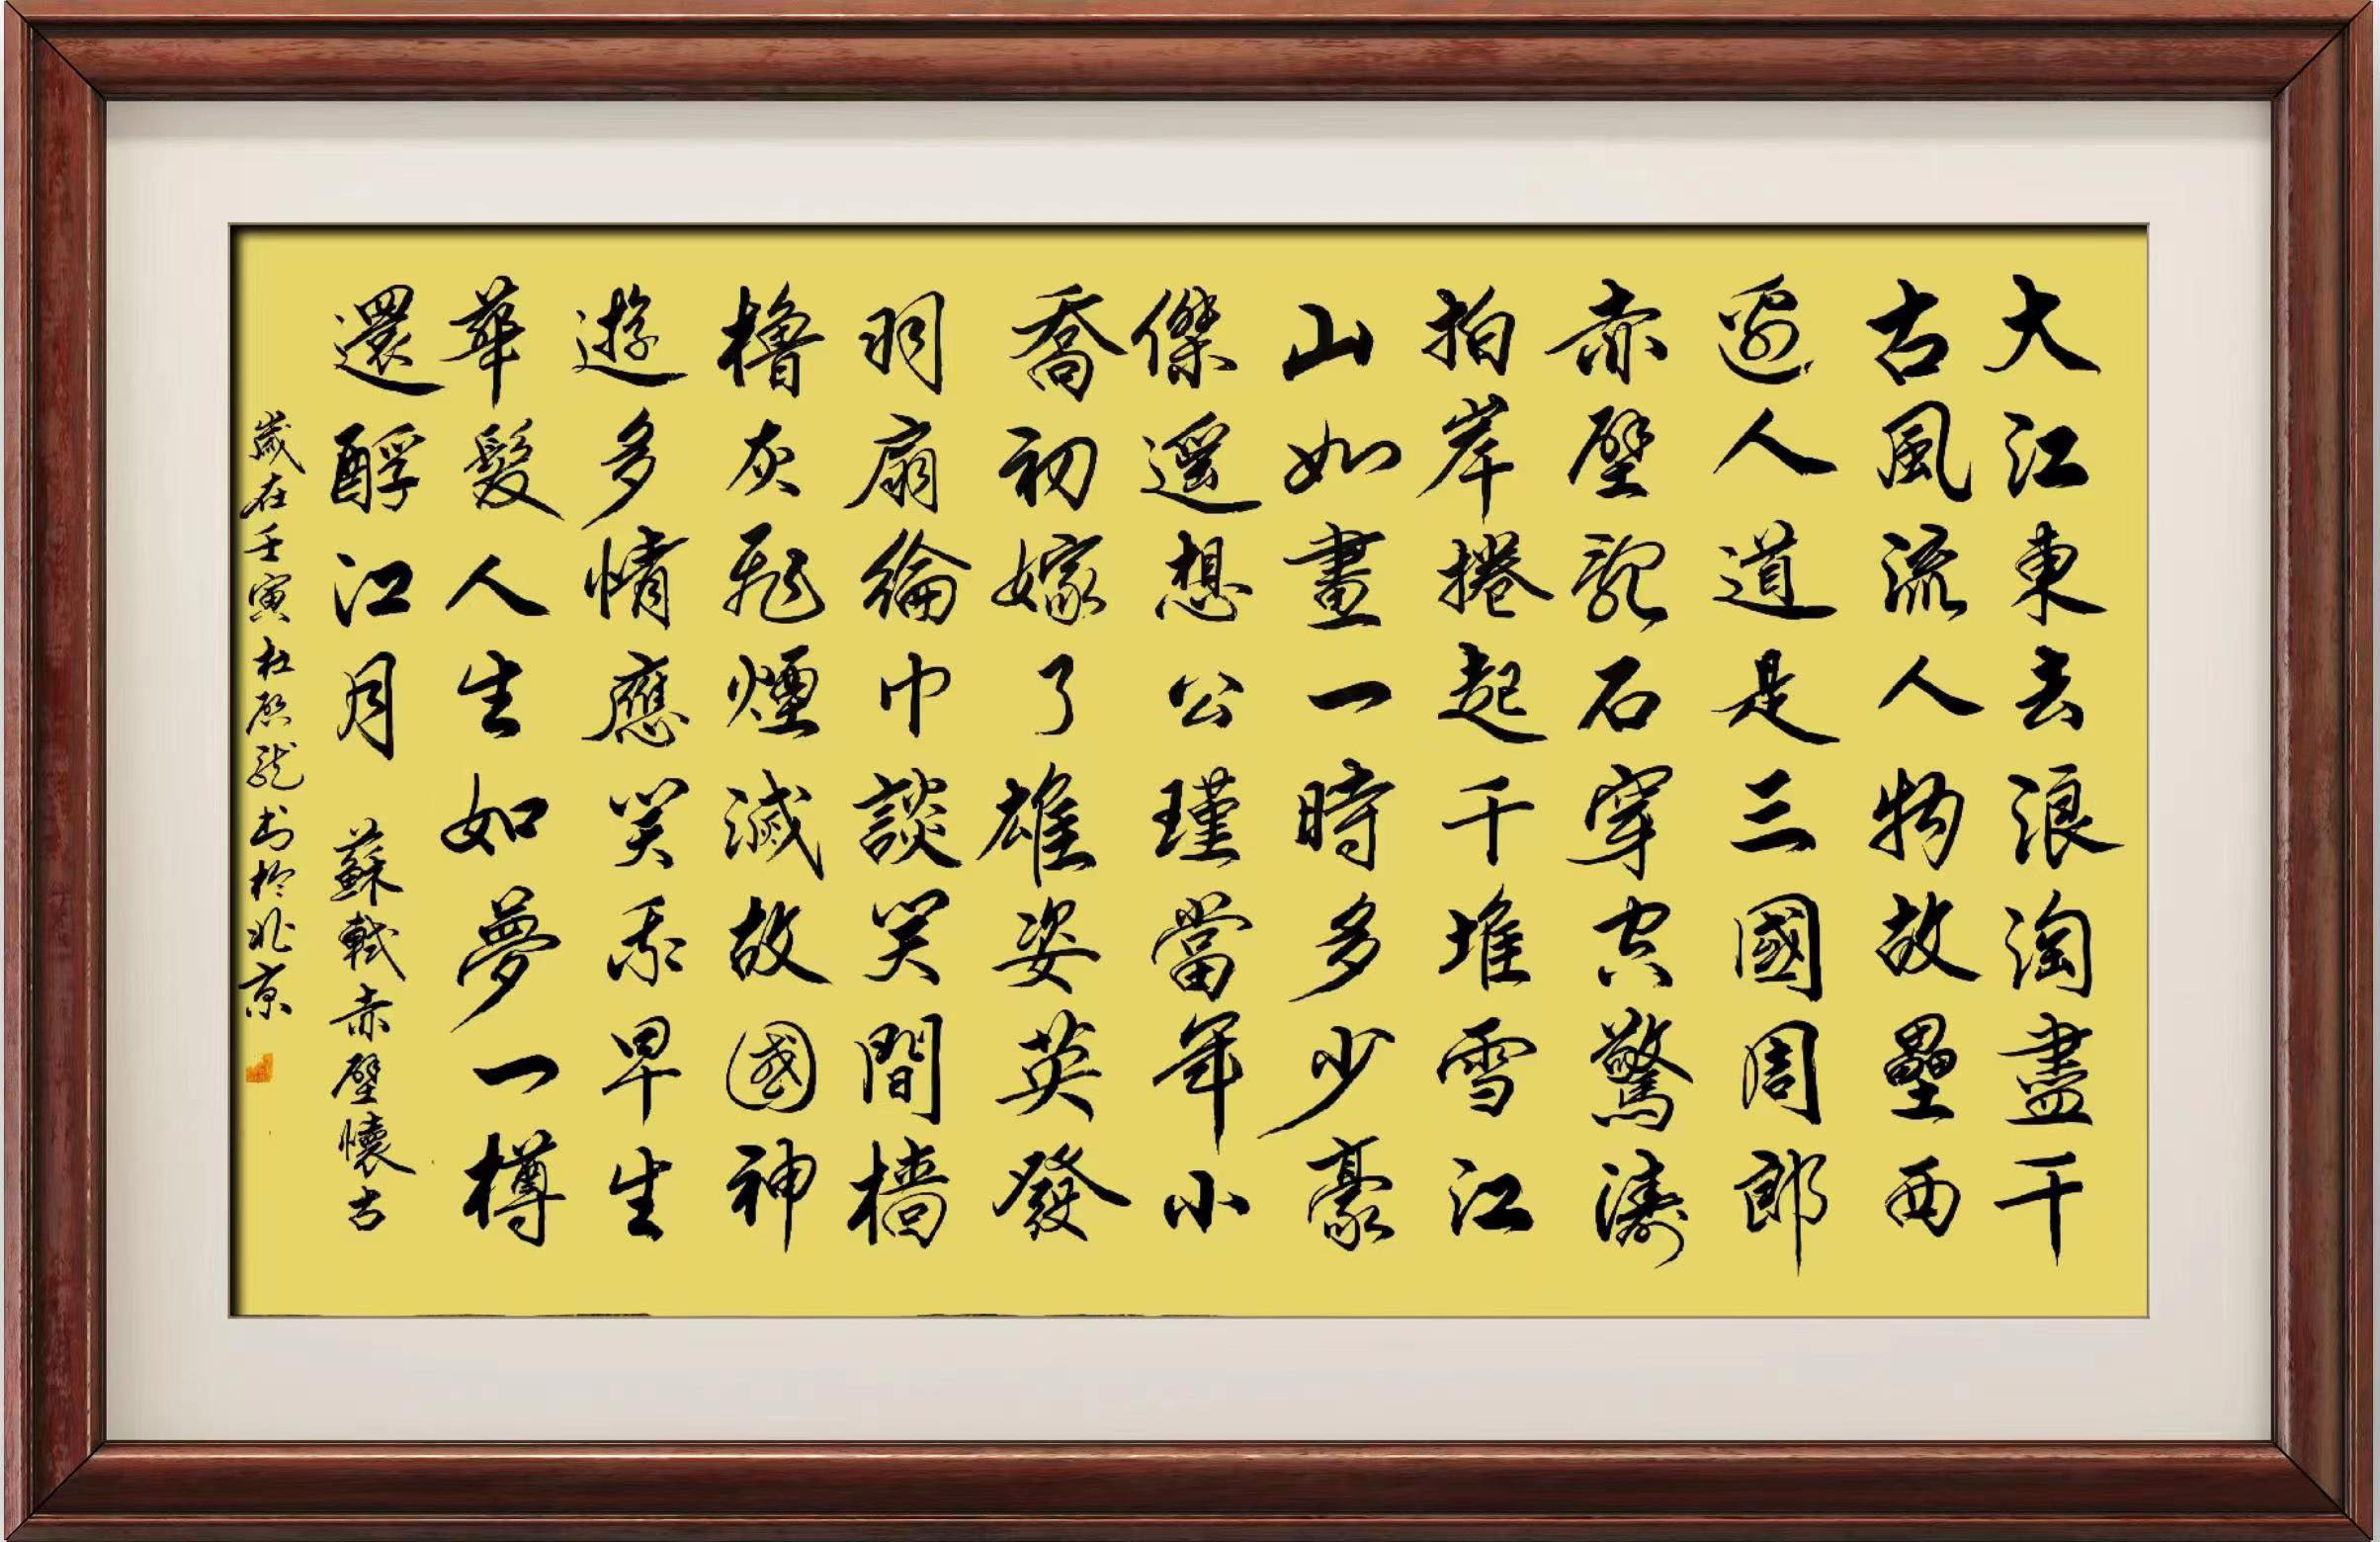 大江東去浪淘盡千
古風流人物故壘西
邊人道是三國周郎
赤壁亂石穿空驚濤
拍岸捲起千堆雪江
山如畫一時多少豪
傑遥想公瑾當年小
喬初嫁了雄姿英發
羽扇綸巾談笑間檣
櫓灰飛煙滅故國神
遊多情應笑我早生
華髮人生如夢一樽
還酹江月 蘇軾赤壁懷古
歲在壬寅杜啟龍书於北京